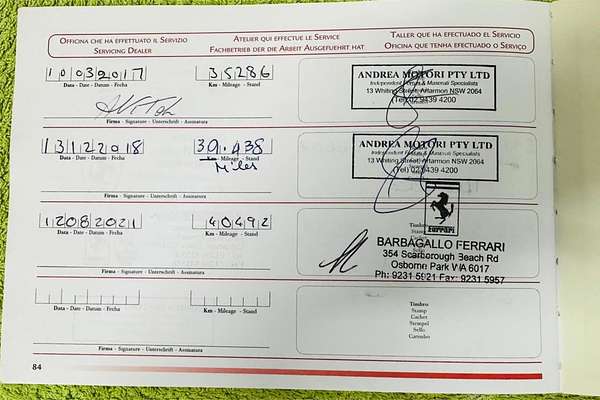 OFFICINA CHE HA EFFETTUATO IL SERVIZIO
SERVICING DEALER
ATELIER QUI EFFECTUE LE SERVICE
FACHBETRIEB DER DIE ARBEIT AUSGEFUEHRT HAT
TALLER QUE HA EFECTUADO EL SERVICIO
OFICINA QUE TENHA EFECTUADO O SERVIÇO
10032017
35286
Data - Date - Datum - Fecha
Km - Mileage - Stand
Firma - Signature - Unterschrift - Assinatura
ANDREA MOTORI PTY LTD
Independent Ferrari & Maserati Specialists
13 Whiting Street, Artarmon NSW 2064
(Tel) 02 9439 4200
13122018
39.438
Data - Date - Datum - Fecha
Km - Mileage - Stand
Miles
Firma - Signature - Unterschrift - Assinatura
ANDREA MOTORI PTY LTD
Independent Ferrari & Maserati Specialists
13 Whiting Street, Artarmon NSW 2064
(Tel) 02 9439 4200
12082021
40492
Data - Date - Datum - Fecha
Km - Mileage - Stand
Firma - Signature - Unterschrift - Assinatura
Ferrari
Timbro
Stamp
BARBAGALLO FERRARI
354 Scarborough Beach Rd
Osborne Park WA 6017
Ph: 9231 5921 Fax: 9231 5957
Data - Date - Datum - Fecha
Km - Mileage - Stand
Firma - Signature - Unterschrift - Assinatura
Timbro
Stamp
Cachet
Stempel
Sello
Carimbo
84